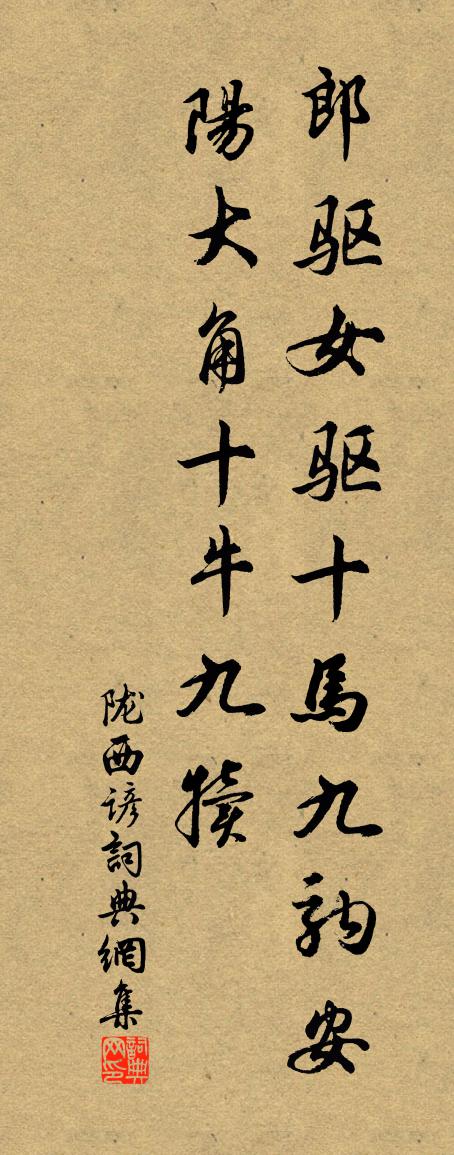 郎驱女驱十馬九駒安
陽大角十牛九犢
陇西谚詞典網集
詞典
网印